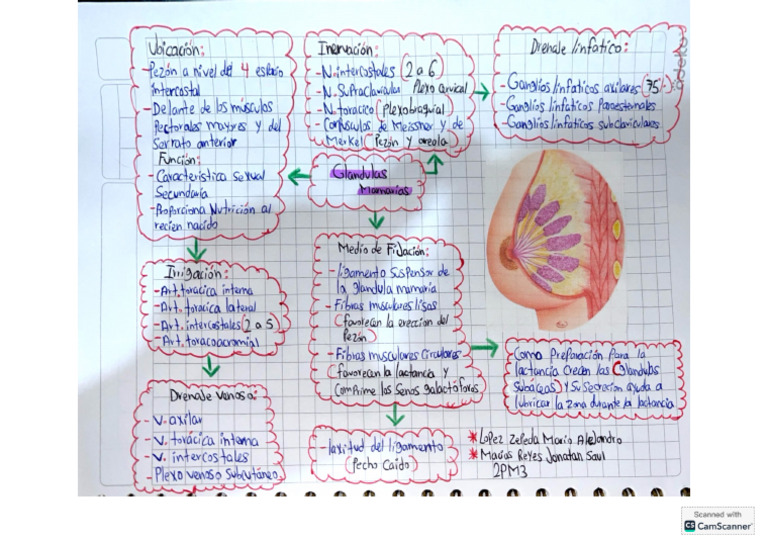 Ubicación:
-Pezón a nivel del 4 espacio
intercostal
-Delante de los músculos
Pectorales mayores y del
Serrato anterior
Función:
-Característica sexual
Secundaria
-Proporciona Nutrición al
recien nacido
Inervación:
-N.intercostales (2 a 6)
-N. Supraclavicular Plexo cervical
-N.toracico (Plexobraquial)
-Corpúsculos de Meissner y de
Merkel (Pezón y areola)
Drenaje linfatico:
-Ganglios linfaticos axilares (75%)
-Ganglios linfaticos Paraesternales
-Ganglios linfaticos subclaviculares
Glandulas
Mamarias
Irrigación:
-Art.toracica interna
-Art.toracica lateral
-Art.intercostales (2 a 5)
-Art.toracoacromial
Medio de Fijación:
-ligamento Suspensor de
la glandula mamaria
-Fibras musculares lisas
(favorecen la ereccion del
Pezón)
-Fibras musculares Circulares
(favorecen la lactancia y
Comprime los Senos galactóforos
Como Preparación Para la
lactancia Crecen las (Glandulas
Subáceas) y Su Secrecion ayuda a
lubricar la Zona durante la lactancia
Drenaje venoso:
-V.axilar
-V. torácica interna
-V. intercostales
-Plexo venoso Subcutáneo
-laxitud del ligamento
(Pecho Caído)
*López Zepeda Mario Alejandro
*Macías Reyes Jonatan Saul
2PM3
Scanned with
CS CamScanner